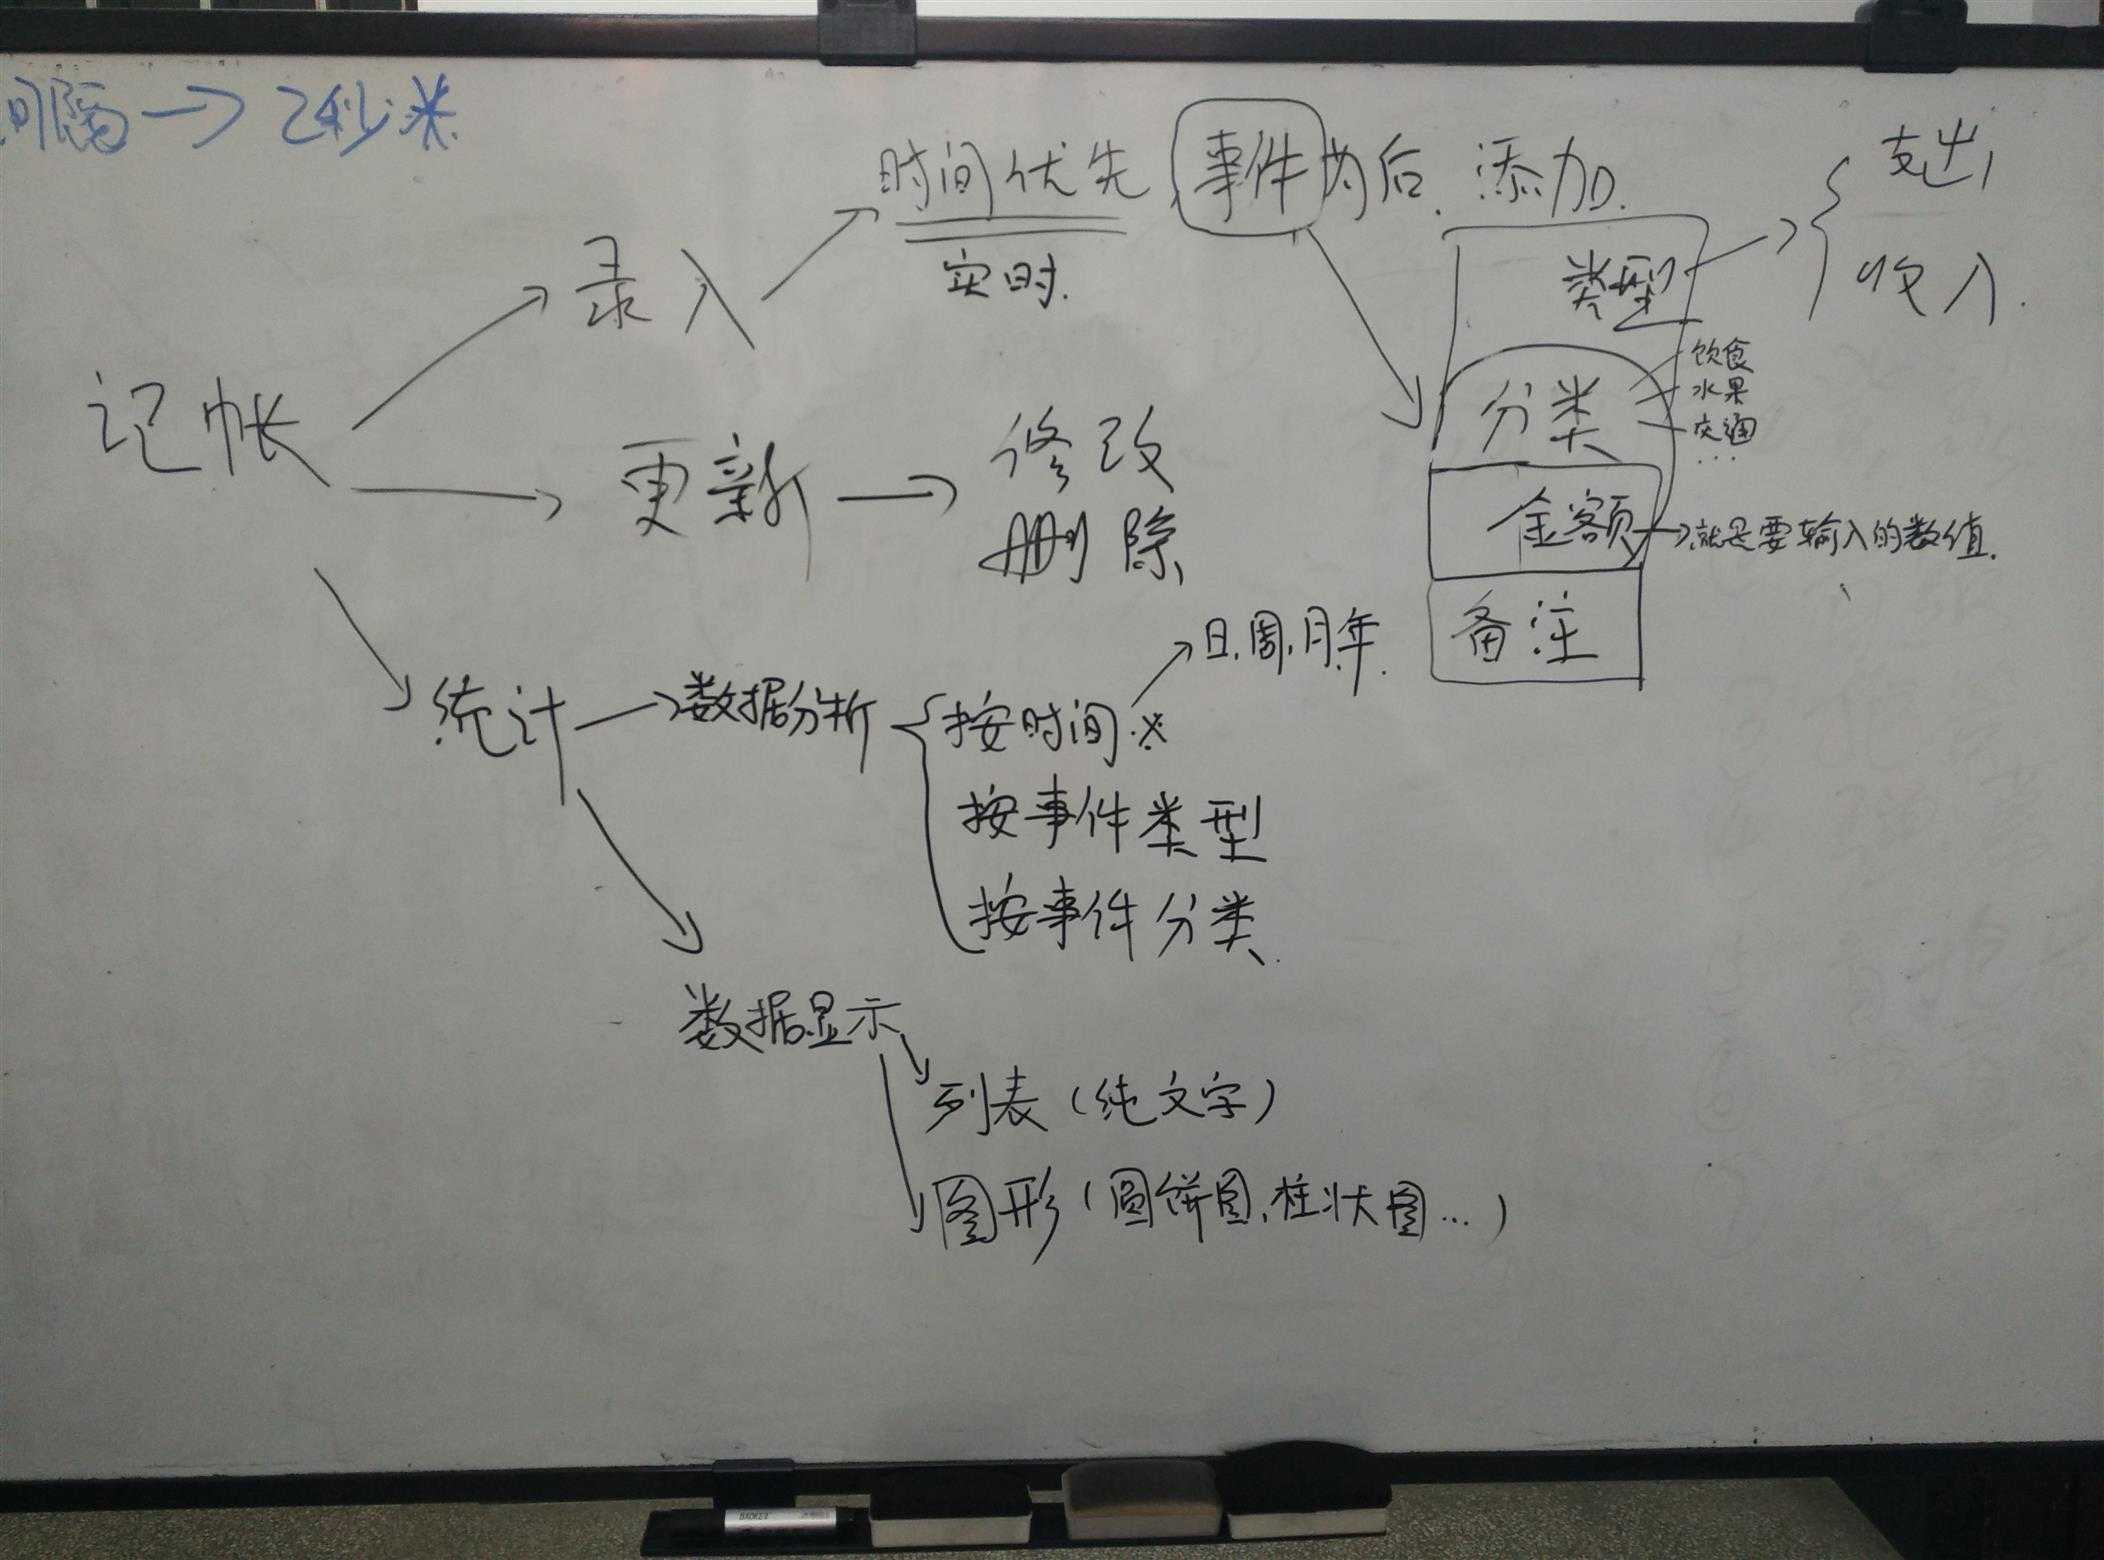 间隔→2秒
时间优先,事件为后.添加.
实时.
支出
收入.
录入
类型
记帐
饮食
水果
交通
...
分类
更新→修改
删除
金额→就是要输入的数值.
备注
日.周.月.年.
统计→数据分析
按时间※
按事件类型
按事件分类.
数据显示
列表(纯文字)
图形(圆饼图,柱状图...)